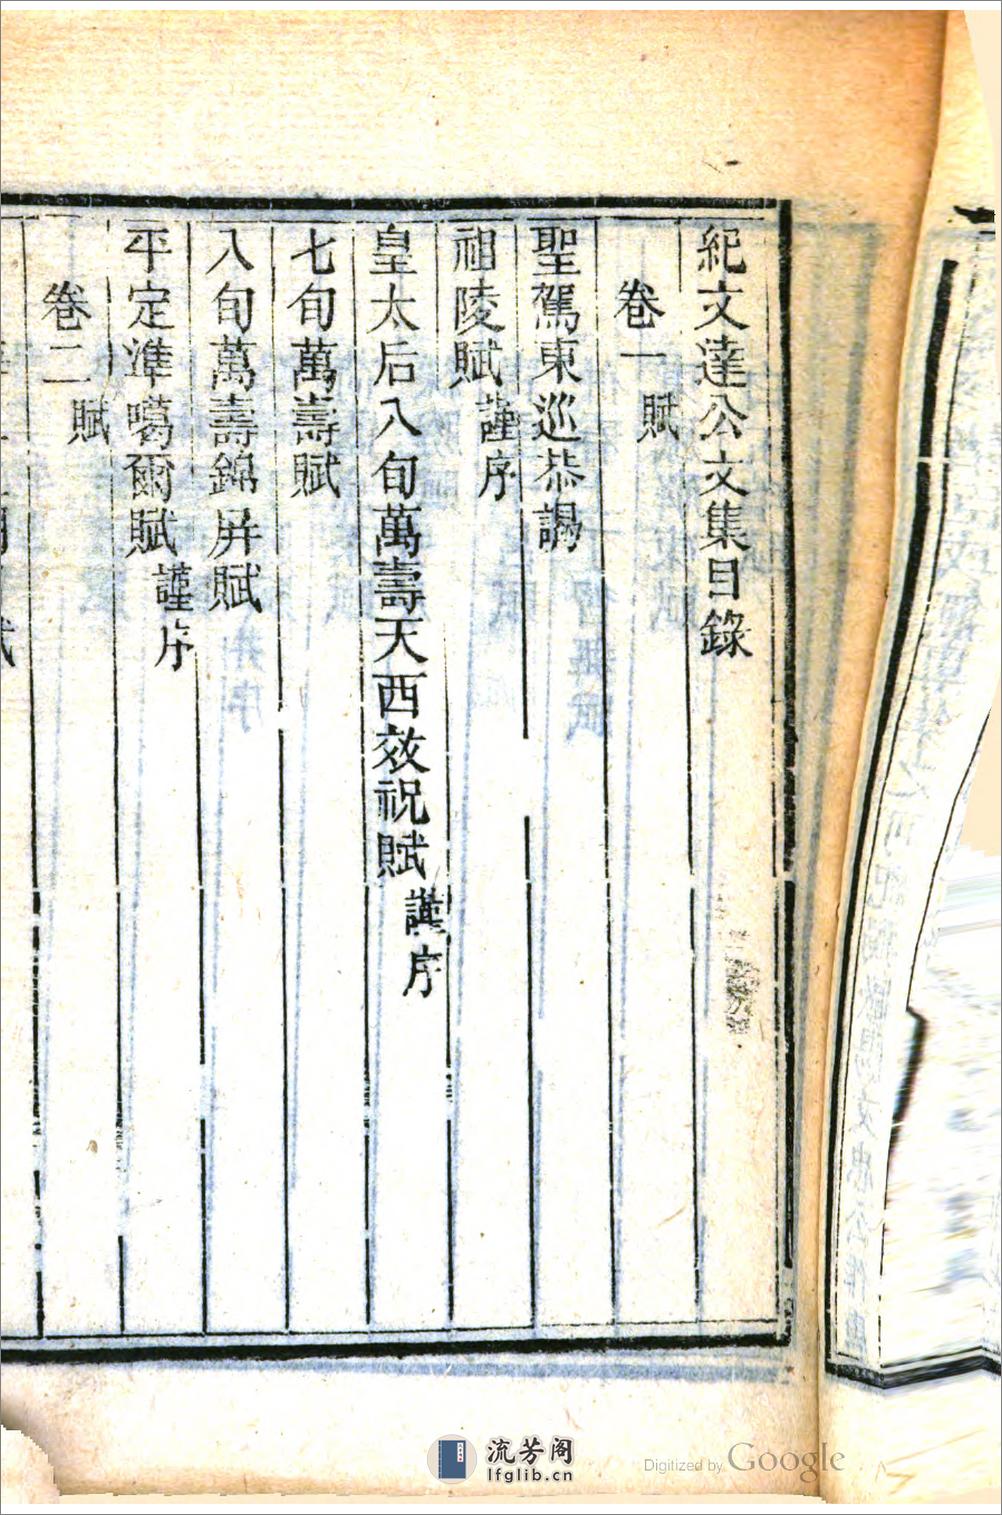 紀文達公文集目錄
卷一
賦
聖駕東巡恭謁
祖陵賦謹序
皇太后八旬萬壽天西效祝賦謹序
七旬萬壽賦
八旬萬壽錦屏賦
平定準噶爾賦謹序
卷二
賦
流芳阁
lfglib.cn
Digitized by Google